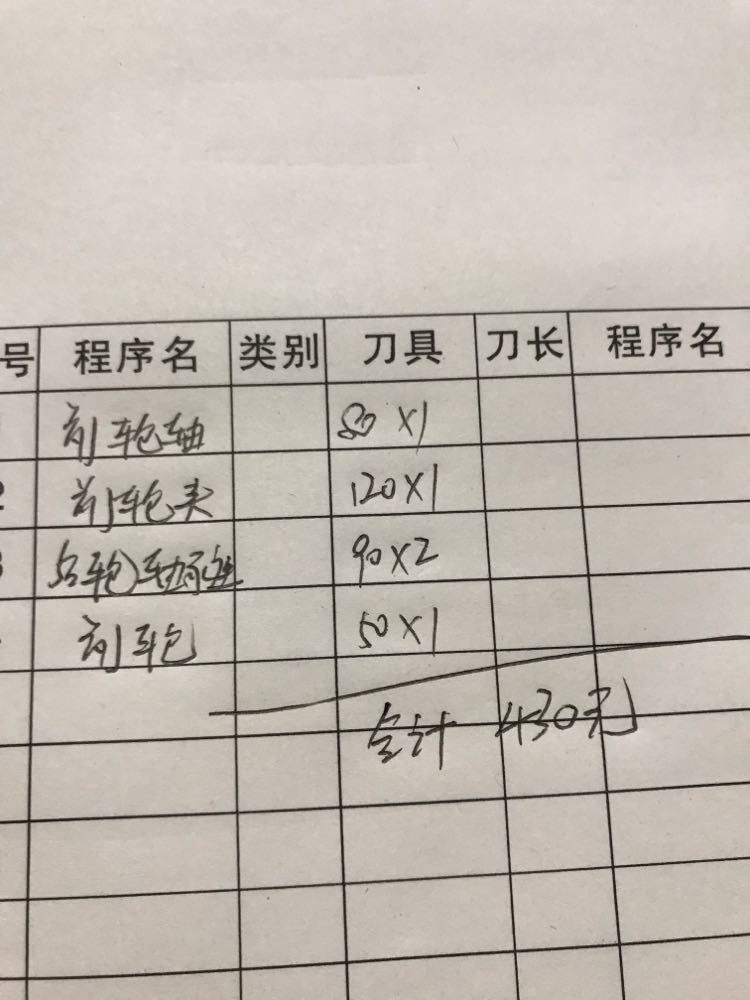 号 程序名 类别 刀具 刀长 程序名
前轮轴 80×1
2 前轮夹 120×1
3 90×2
前轮 50×1
合计 430元